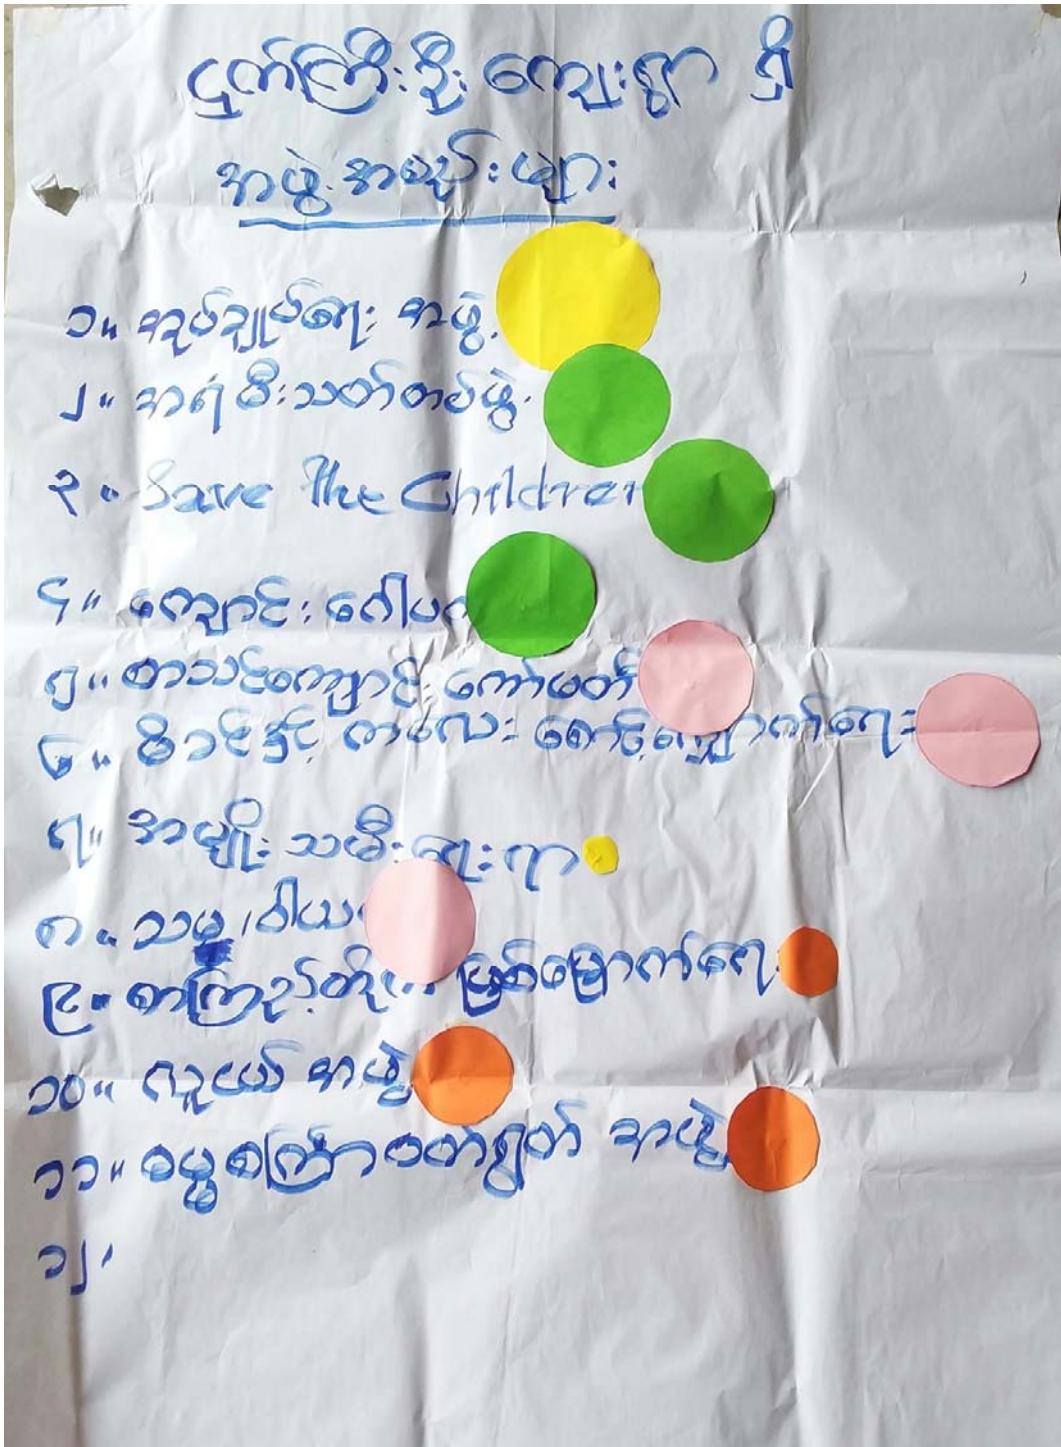 ငှက်ကြီးဦး ကျေးရွာ ရှိ
အဖွဲ့အစည်းများ
၁။ အုပ်ချုပ်ရေး အဖွဲ့
၂။ အရံမီးသတ်တပ်ဖွဲ့
၃။ Save The Children
၄။ ကျောင်း ဂေါပက
၅။ စာသင်ကျောင်း ကော်မတီ
၆။ မိခင်နှင့် ကလေး စောင့်ရှောက်ရေး
၇။ အမျိုးသမီးရေးရာ
၈။ သမဝါယ
၉။ စာကြည့်တိုက် ဖြစ်မြောက်ရေး
၁၀။ လူငယ် အဖွဲ့
၁၁။ ဓမ္မစကြာဝတ်ရွတ် အဖွဲ့
၁၂၊